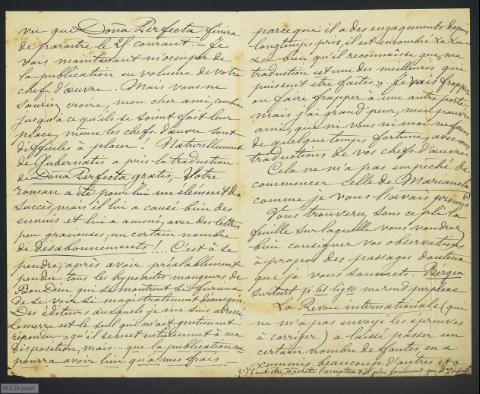 vu que Doña Perfecta finira
de paraître le 25 courant. — Je
vais maintenant m'occuper de
la publication en volume de votre
chef d'œuvre. Mais vous ne
sauriez croire, mon cher ami, combien
jusqu'à ce qu'ils se soient fait leur
place, même les chefs d'œuvre sont
difficiles à placer! Naturellement
de Gubernatis a pris la traduction
de Doña Perfecta gratis. Votre
roman a été pour lui un élément de
succès, mais il lui a causé bien des
ennuis et lui a amené, avec des lettres
peu gracieuses, un certain nombre
de désabonnements! C'est à se
pendre, après avoir préalablement
pendu tous les hypocrites mangeurs de
Bon Dieu qui se montrent si furieux
de se voir si magistralement démasqués.
Des éditeurs auxquels je me suis adressé
Lemerre est le seul qui m'ait gentiment
répondu "qu'il se met entièrement à ma
disposition, mais... que la publication ne
pourra avoir lieu qu'à mes frais
parce que il a des engagements depuis
longtemps pris, il est encombré &a &a
et bien qu'il reconnaisse que ma
traduction est une des meilleures qui
puissent être faites". Je vais frapper
ou faire frapper à une autre porte,
mais j'ai grand peur, mon pauvre
ami, que ni vous ni moi ne fassions
de quelque temps fortune avec les
traductions de vos chefs d'œuvre
Cela ne m'a pas empêché de
commencer celle de Marianela
comme je vous l'avais promis
Vous trouverez sous ce pli la
feuille sur laquelle vous voudrez
bien consigner vos observations
à propos des passages douteux
que je vous soumets.
surtout
La Revue internationale (qui
ne m'a pas envoyé les épreuves
à corriger) a laissé passer un
certain nombre de fautes, en a
commis beaucoup d'autres et a